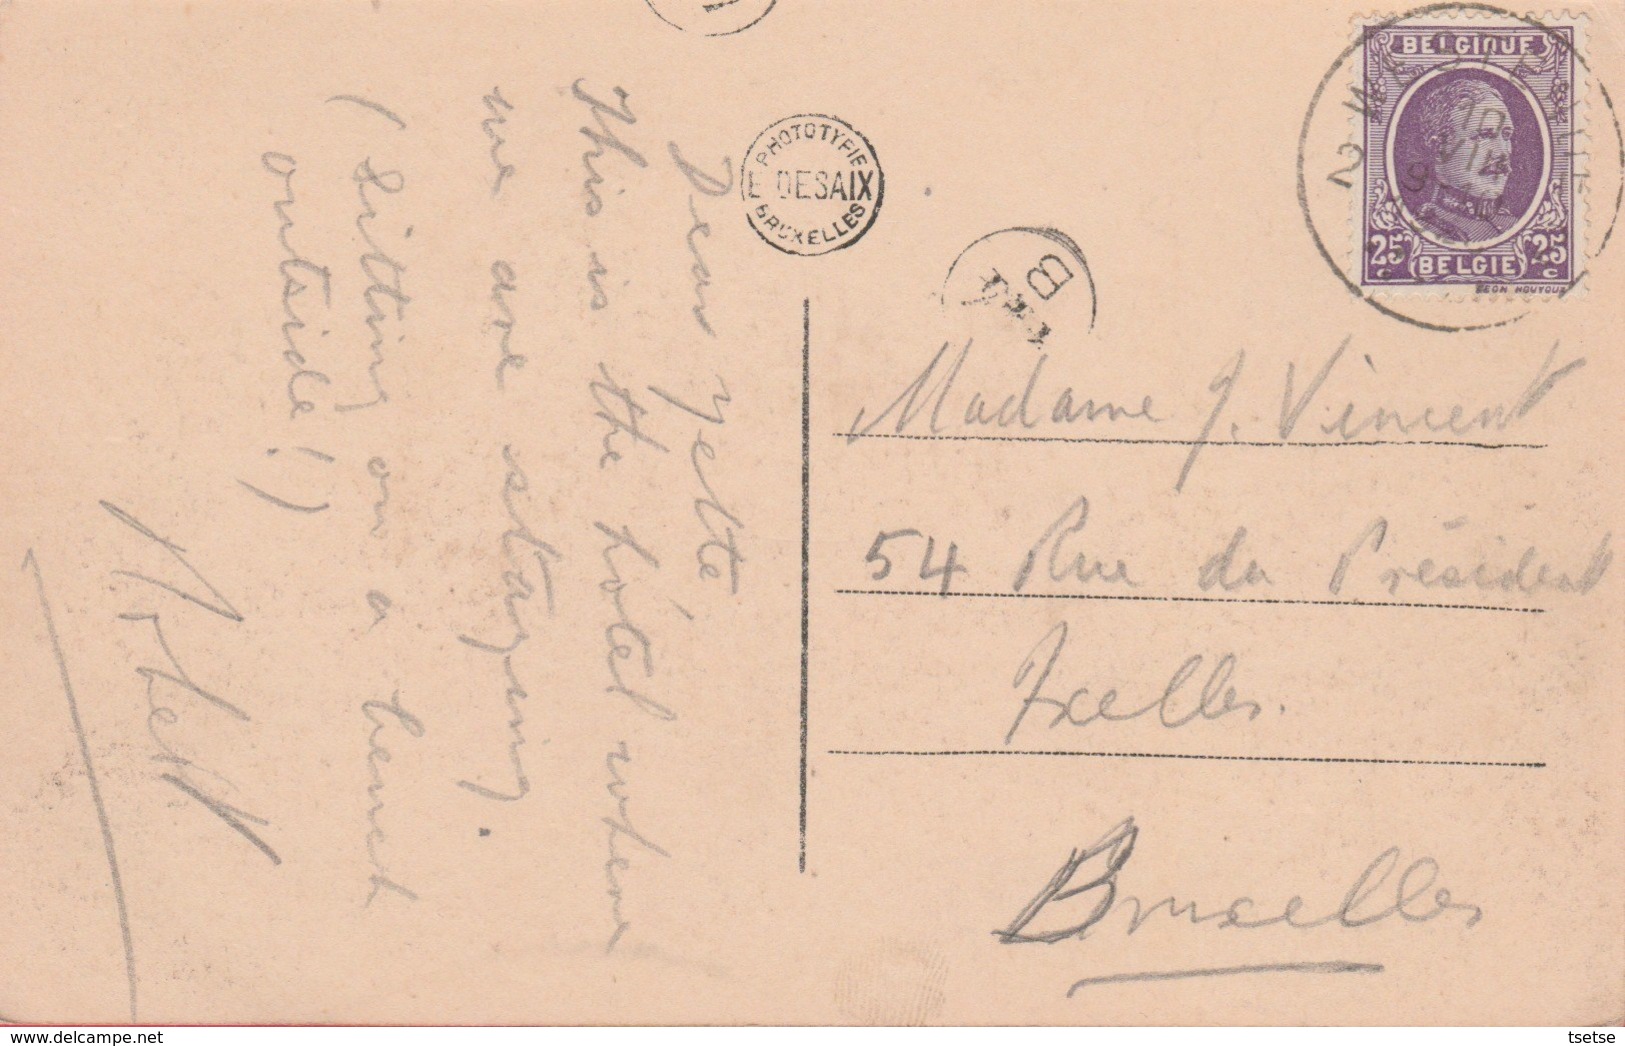 Dear Yette
This is the hôtel where
we are staying.
(Sitting on a bench
outside!)
Robert
PHOTOTYPIE
E DESAIX
BRUXELLES
B
BELGIQUE
25 25
c c
BELGIE
10
VII
9
2
Madame J. Vincent
54 Rue du Président
Ixelles.
Bruxelles
tsetse